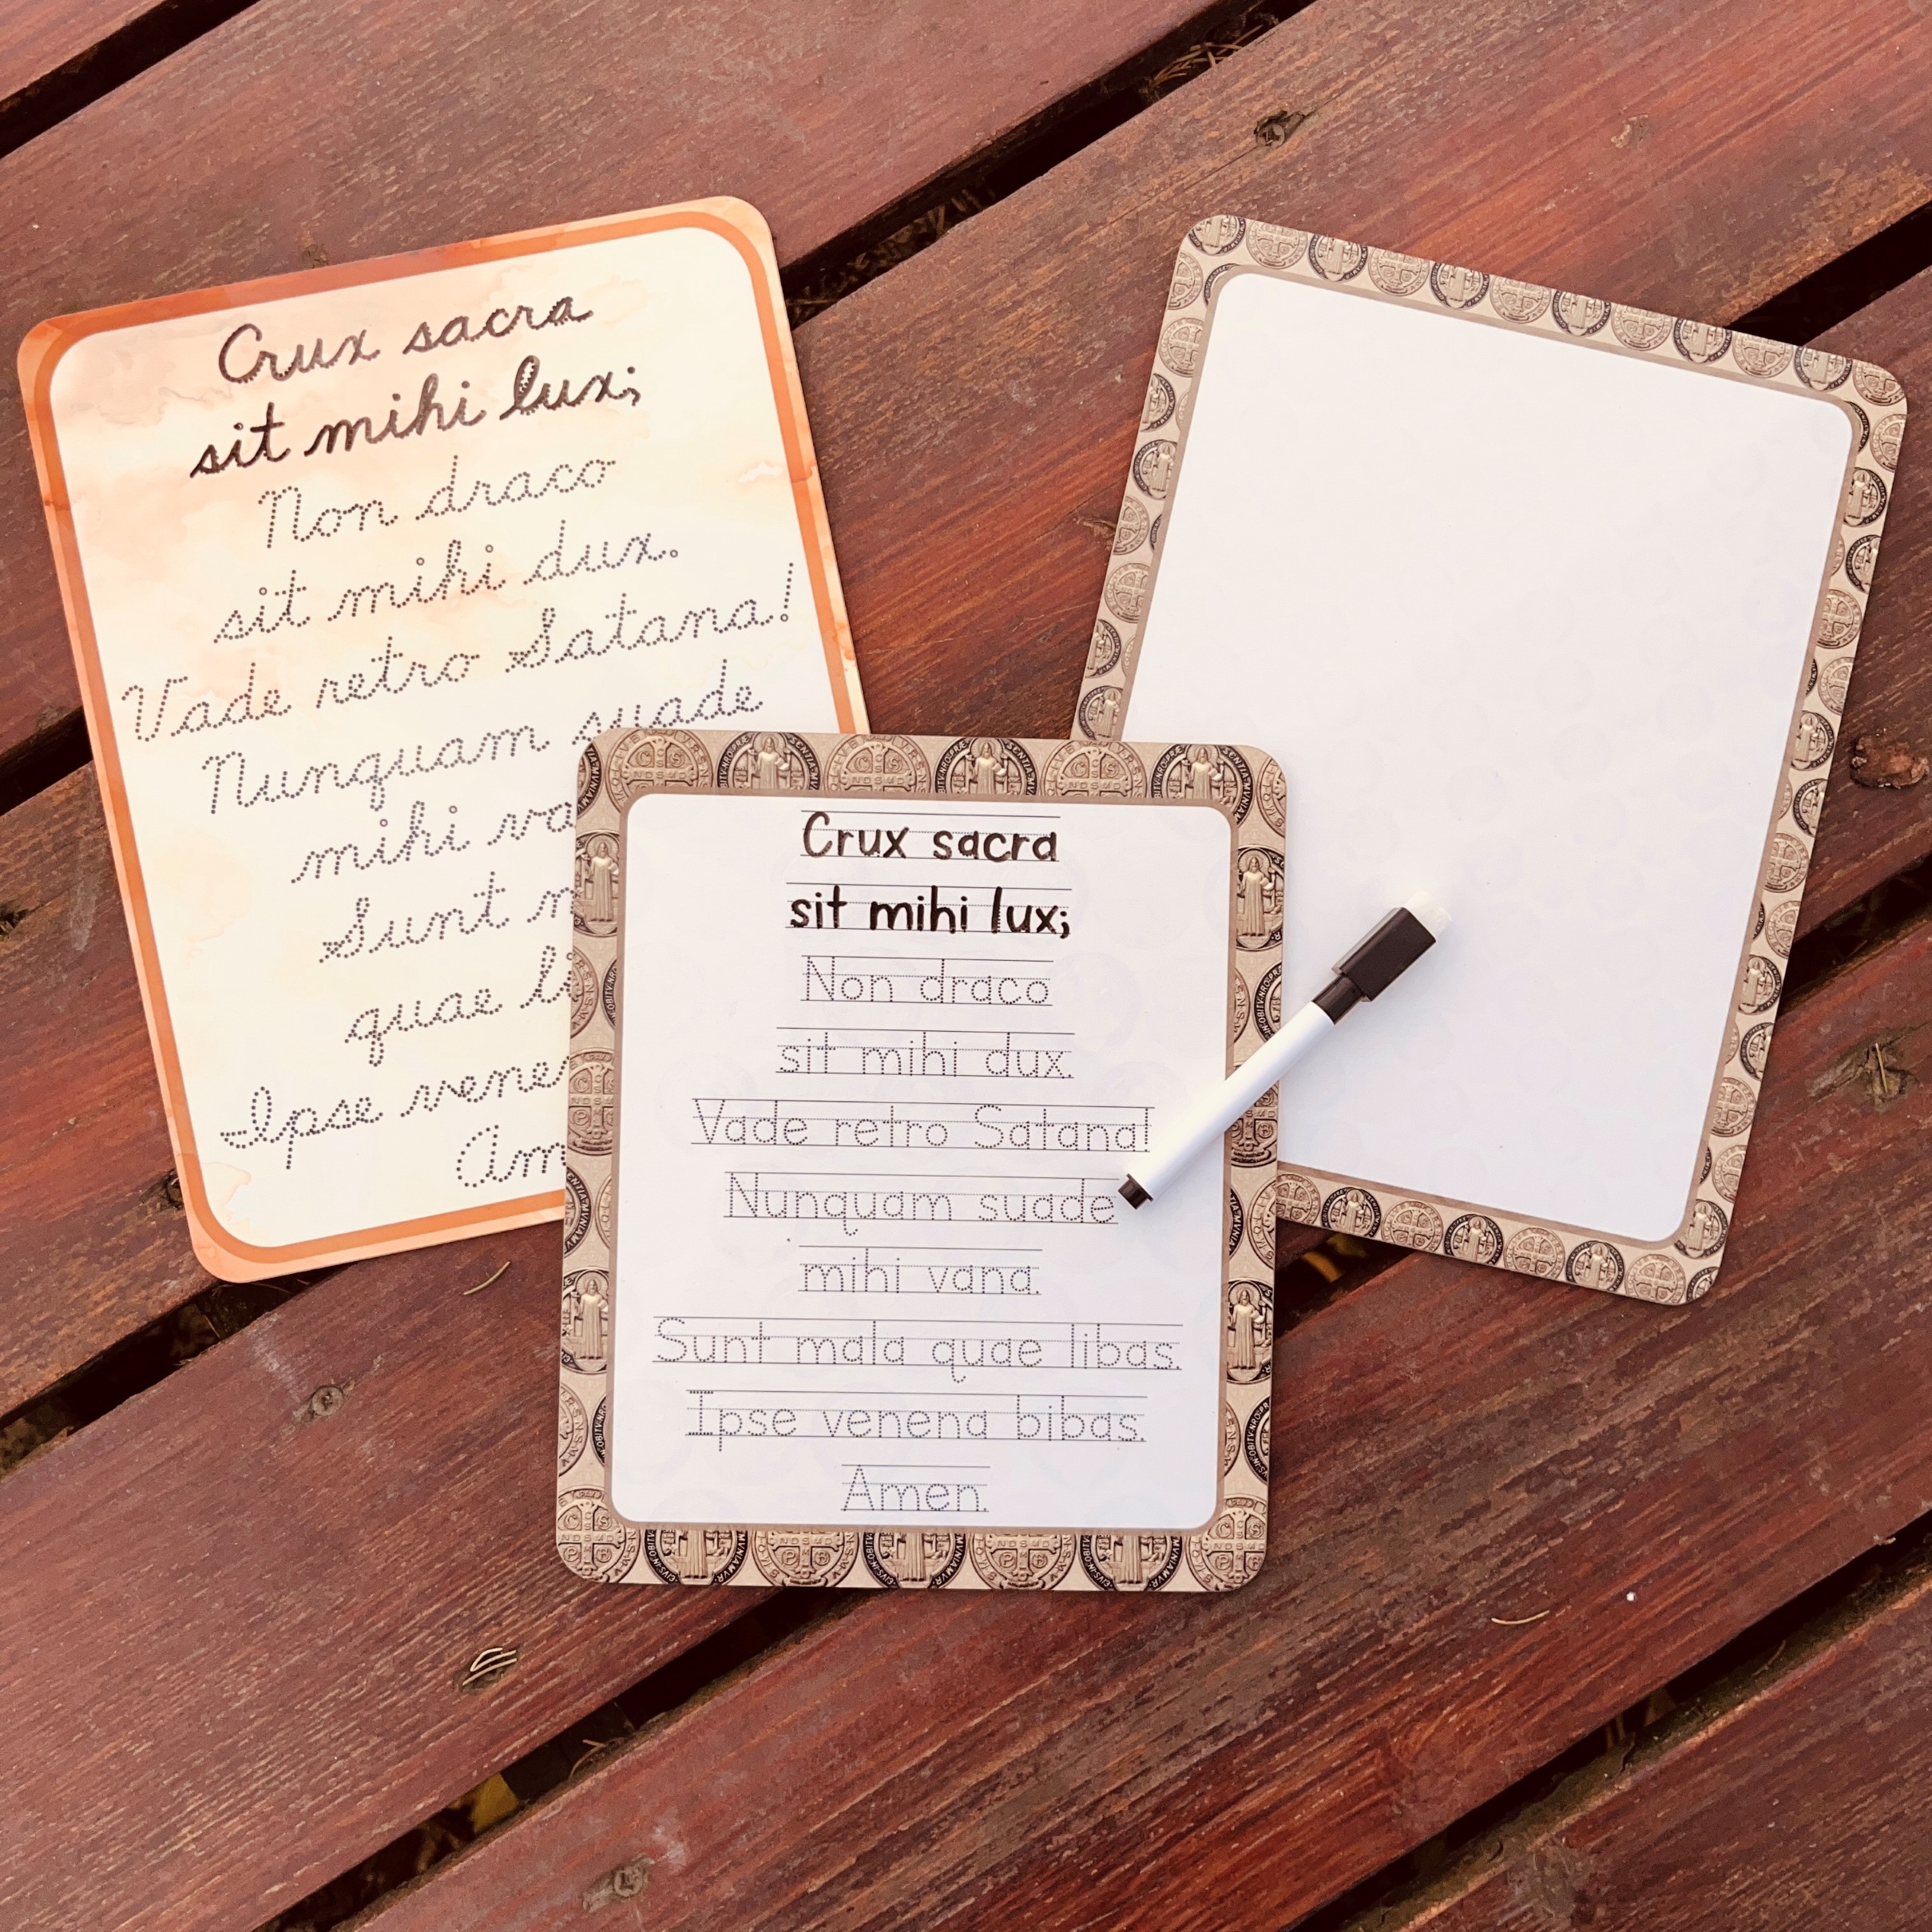 Crux sacra
sit mihi lux;
Non draco
sit mihi dux.
Vade retro Satana!
Nunquam suade
mihi
Sunt
quae
Ipse
Crux sacra
sit mihi lux;
Non draco
sit mihi dux.
Vade retro Satana!
Nunquam suade
mihi vana.
Sunt mala quae libas.
Ipse venena bibas.
Amen.